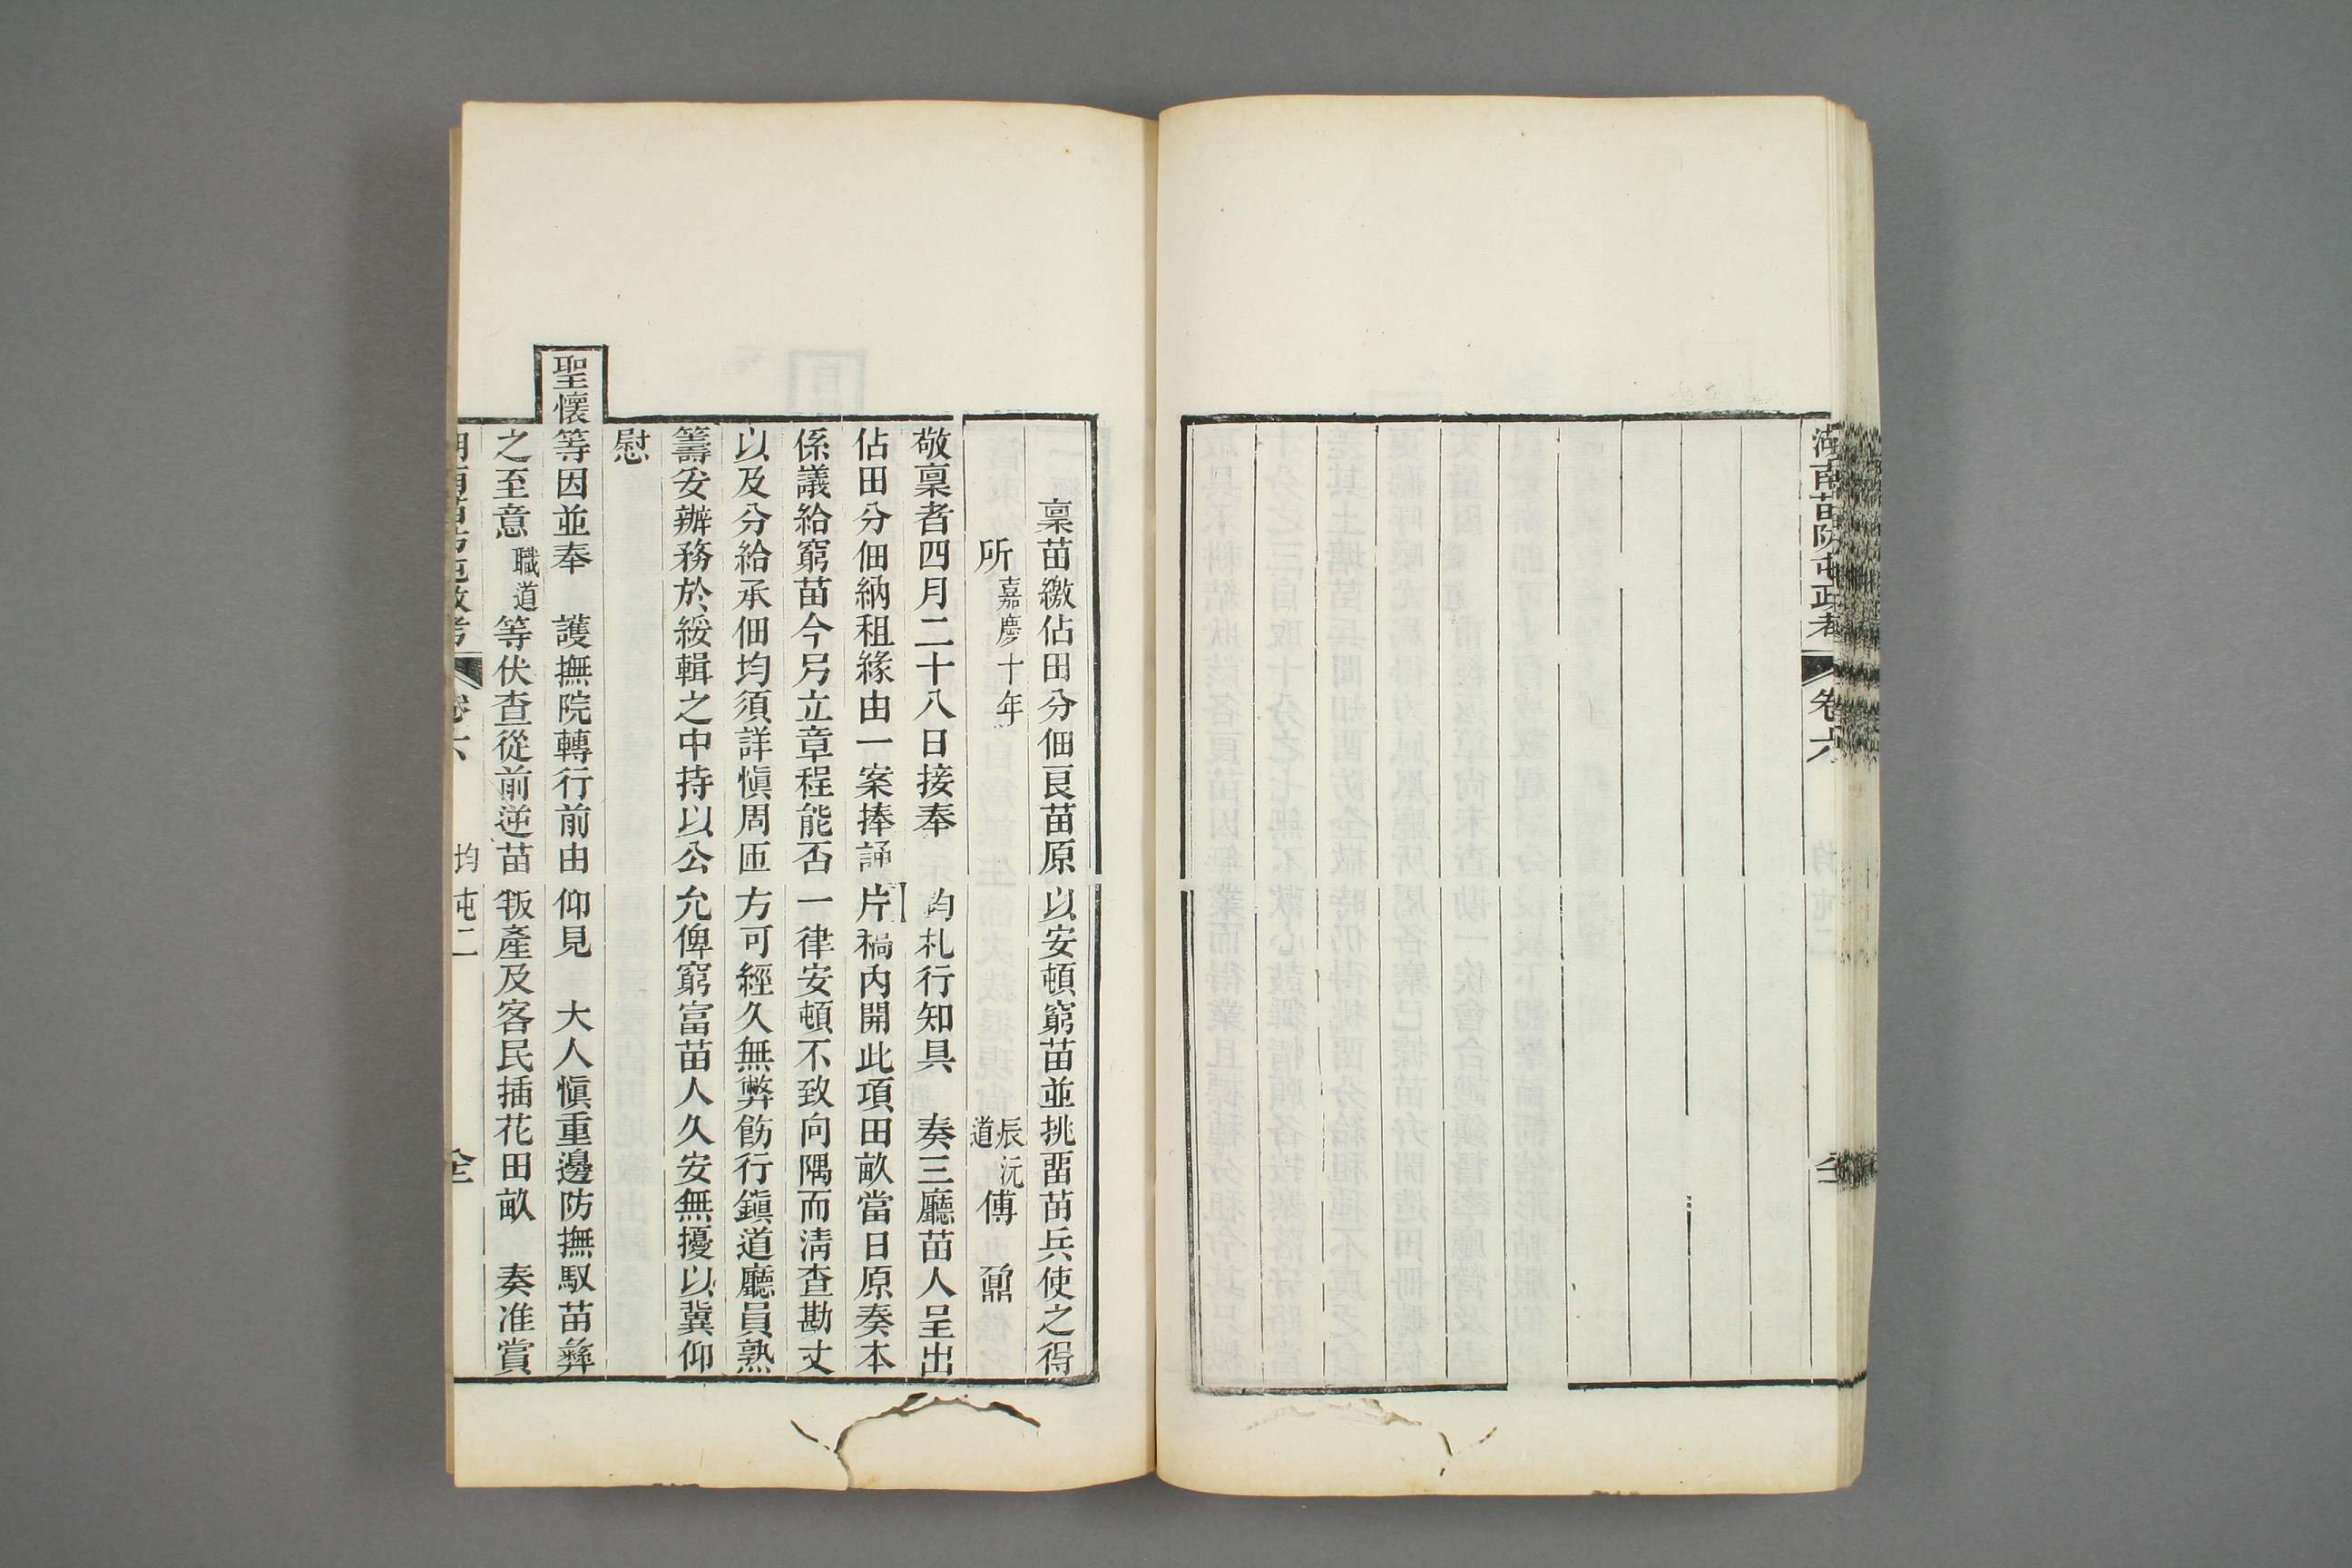 湖南苗防屯政考 卷六 均屯二
稟苗繳佔田分佃艮苗原以安頓窮苗並挑畱苗兵使之得
所 嘉慶十年 辰沅道 傅 鼐
敬稟者四月二十八日接奉 鈞札行知具 奏三廳苗人呈出
佔田分佃納租緣由一案捧誦片稿內開此項田畝當日原奏本
係議給窮苗今另立章程能否一律安頓不致向隅而清查勘丈
以及分給承佃均須詳愼周匝方可經久無弊飭行鎭道廳員熟
籌安辦務於綏輯之中持以公允俾窮富苗人久安無擾以冀仰
慰
聖懷等因並奉 護撫院轉行前由仰見 大人愼重邊防撫馭苗彝
之至意職道等伏查從前逆苗叛產及客民插花田畝 奏准賞
卷六 均屯二